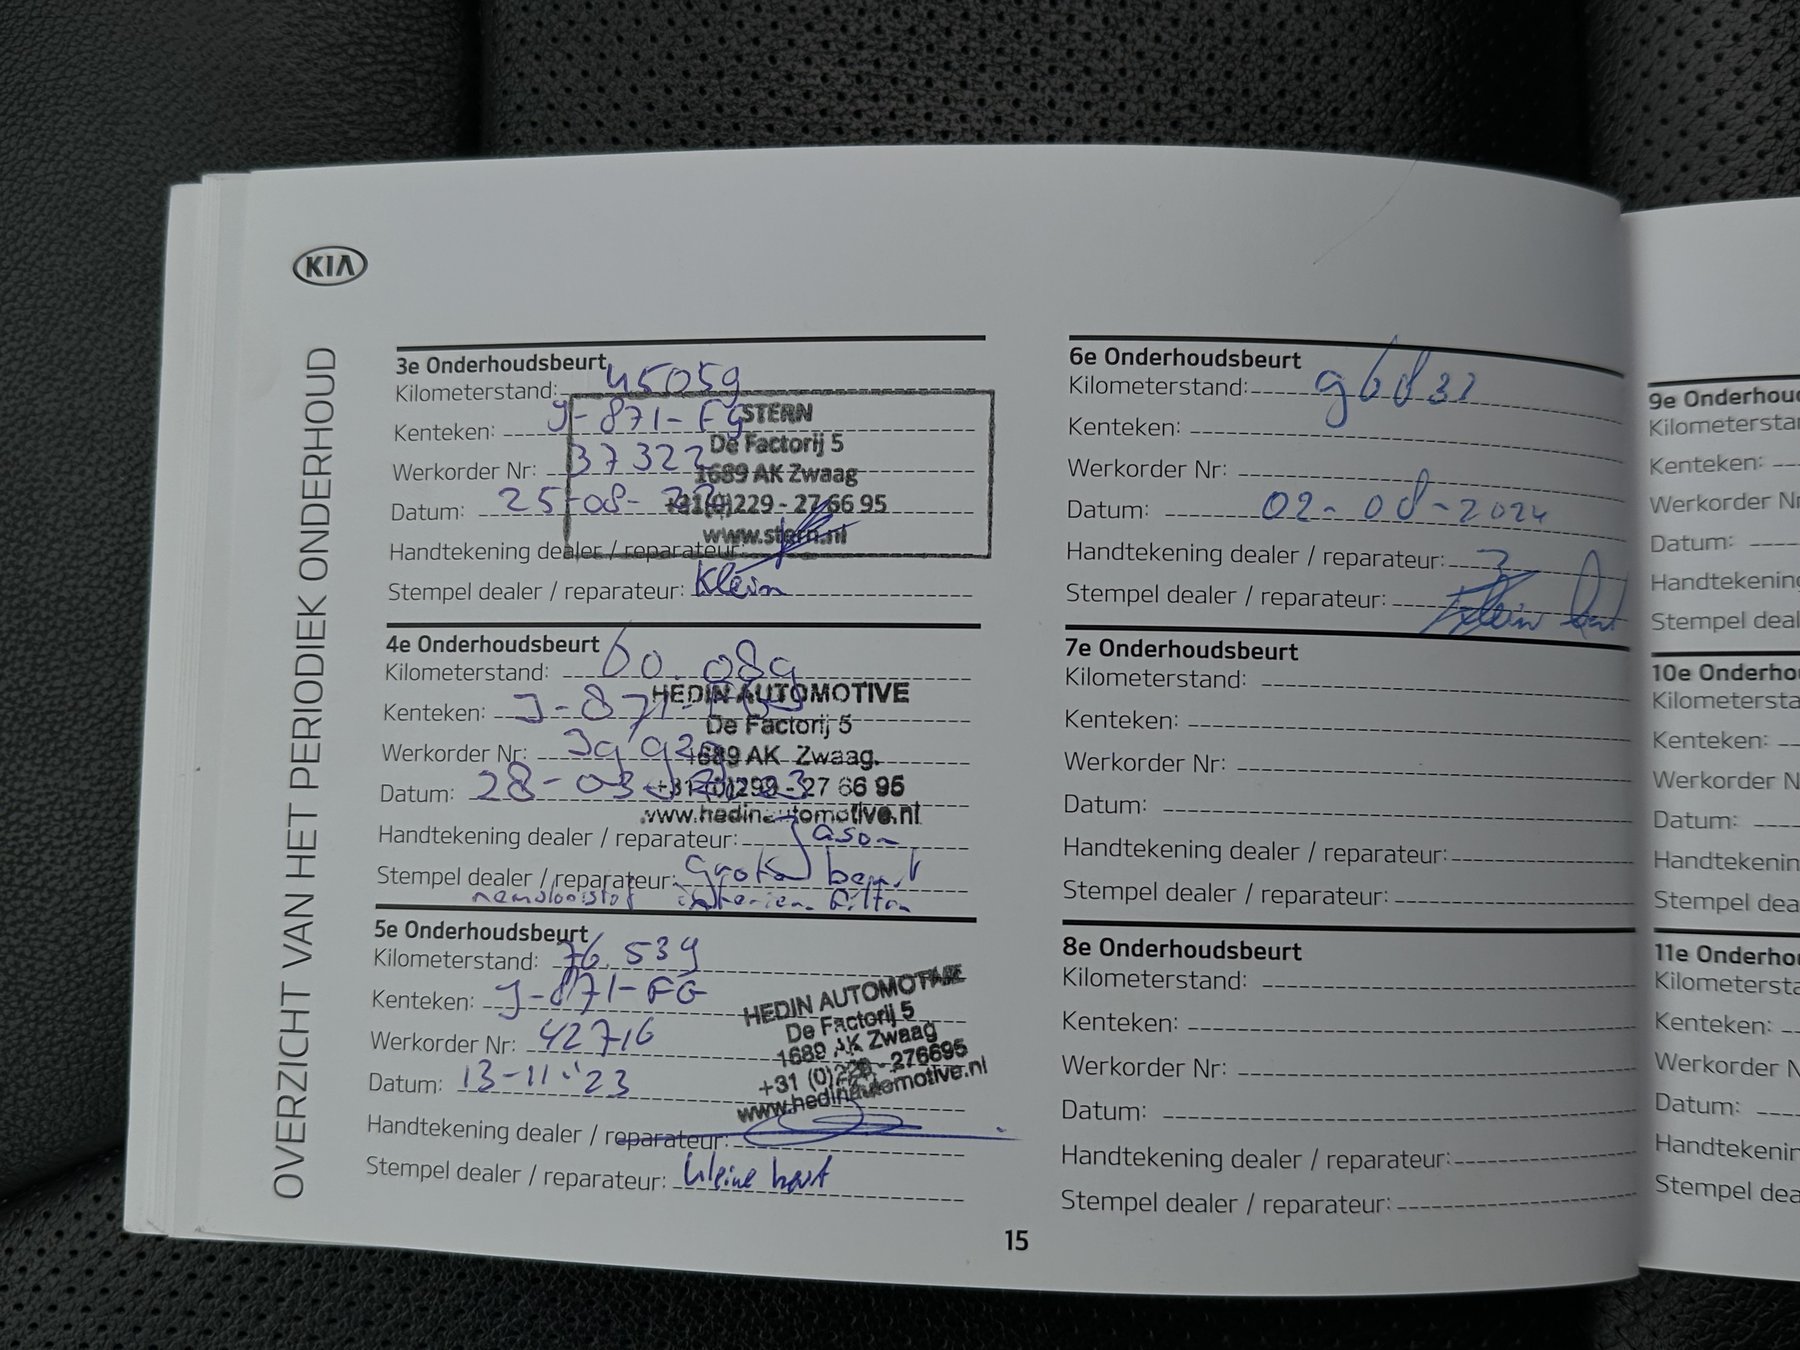 KIA
OVERZICHT VAN HET PERIODIEK ONDERHOUD
3e Onderhoudsbeurt
Kilometerstand: 45059
Kenteken: J-871-FG
Werkorder Nr: 37322
Datum: 25-08-22
Handtekening dealer / reparateur:
Stempel dealer / reparateur: Klein
STERN
De Factorij 5
1689 AK Zwaag
+31(0)229 - 27 66 95
www.stern.nl
4e Onderhoudsbeurt
Kilometerstand: 60.089
Kenteken: J-871-FG
Werkorder Nr:
Datum: 28-03-2023
Handtekening dealer / reparateur: Jason
Stempel dealer / reparateur: Grote beurt
remvloeistof interieur filter
HEDIN AUTOMOTIVE
De Factorij 5
1689 AK Zwaag.
+31(0)299 - 27 66 95
www.hedinautomotive.nl
5e Onderhoudsbeurt
Kilometerstand: 76.539
Kenteken: J-871-FG
Werkorder Nr: 42716
Datum: 13-11-'23
Handtekening dealer / reparateur:
Stempel dealer / reparateur: kleine beurt
HEDIN AUTOMOTIVE
De Factorij 5
1689 AK Zwaag
+31 (0)229 - 276695
www.hedinautomotive.nl
6e Onderhoudsbeurt
Kilometerstand: 96832
Kenteken:
Werkorder Nr:
Datum: 02-08-2024
Handtekening dealer / reparateur:
Stempel dealer / reparateur: Klein beurt
7e Onderhoudsbeurt
Kilometerstand:
Kenteken:
Werkorder Nr:
Datum:
Handtekening dealer / reparateur:
Stempel dealer / reparateur:
8e Onderhoudsbeurt
Kilometerstand:
Kenteken:
Werkorder Nr:
Datum:
Handtekening dealer / reparateur:
Stempel dealer / reparateur:
15
9e Onderhou
Kilometersta
Kenteken:
Werkorder N
Datum:
Handtekening
Stempel deal
10e Onderho
Kilometersta
Kenteken:
Werkorder N
Datum:
Handtekenin
Stempel dea
11e Onderho
Kilometersta
Kenteken:
Werkorder N
Datum:
Handtekenin
Stempel dea